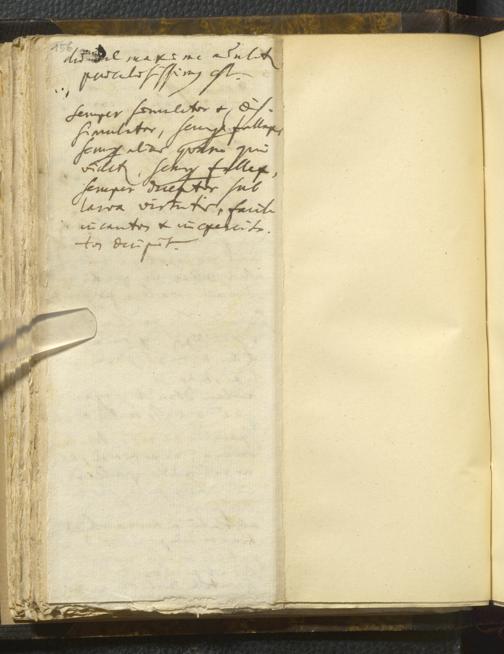 156
maxime
periculosissimus est.
semper simulator & dis-
simulator, semper fallax,
semper alius quam qui
videtur, semper fallax,
semper deceptor sub
larva virtutis, facile
incautos & inexperi-
tos decipit.